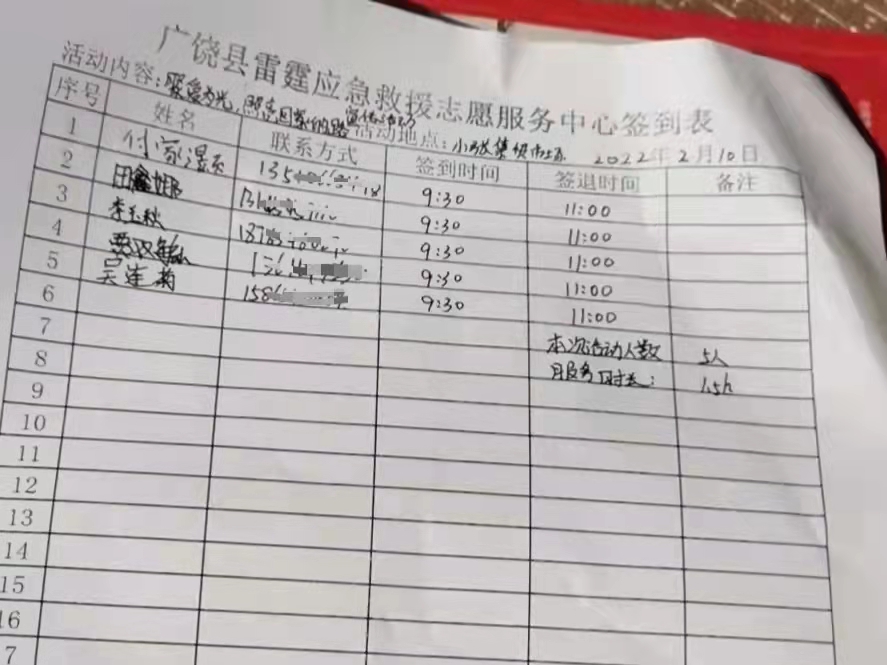 广饶县雷霆应急救援志愿服务中心签到表
活动内容:聚爱为光,照亮回家的路 活动地点: 2022年2月10日
序号 姓名 联系方式 签到时间 签退时间 备注
1 付 135 9:30 11:00
2 田 131 9:30 11:00
3 李玉秋 187 9:30 11:00
4 9:30 11:00
5 吴连菊 158 9:30 11:00
6
7 本次活动人数 5人
8 服务时长: 1.5h
9
10
11
12
13
14
15
16
7